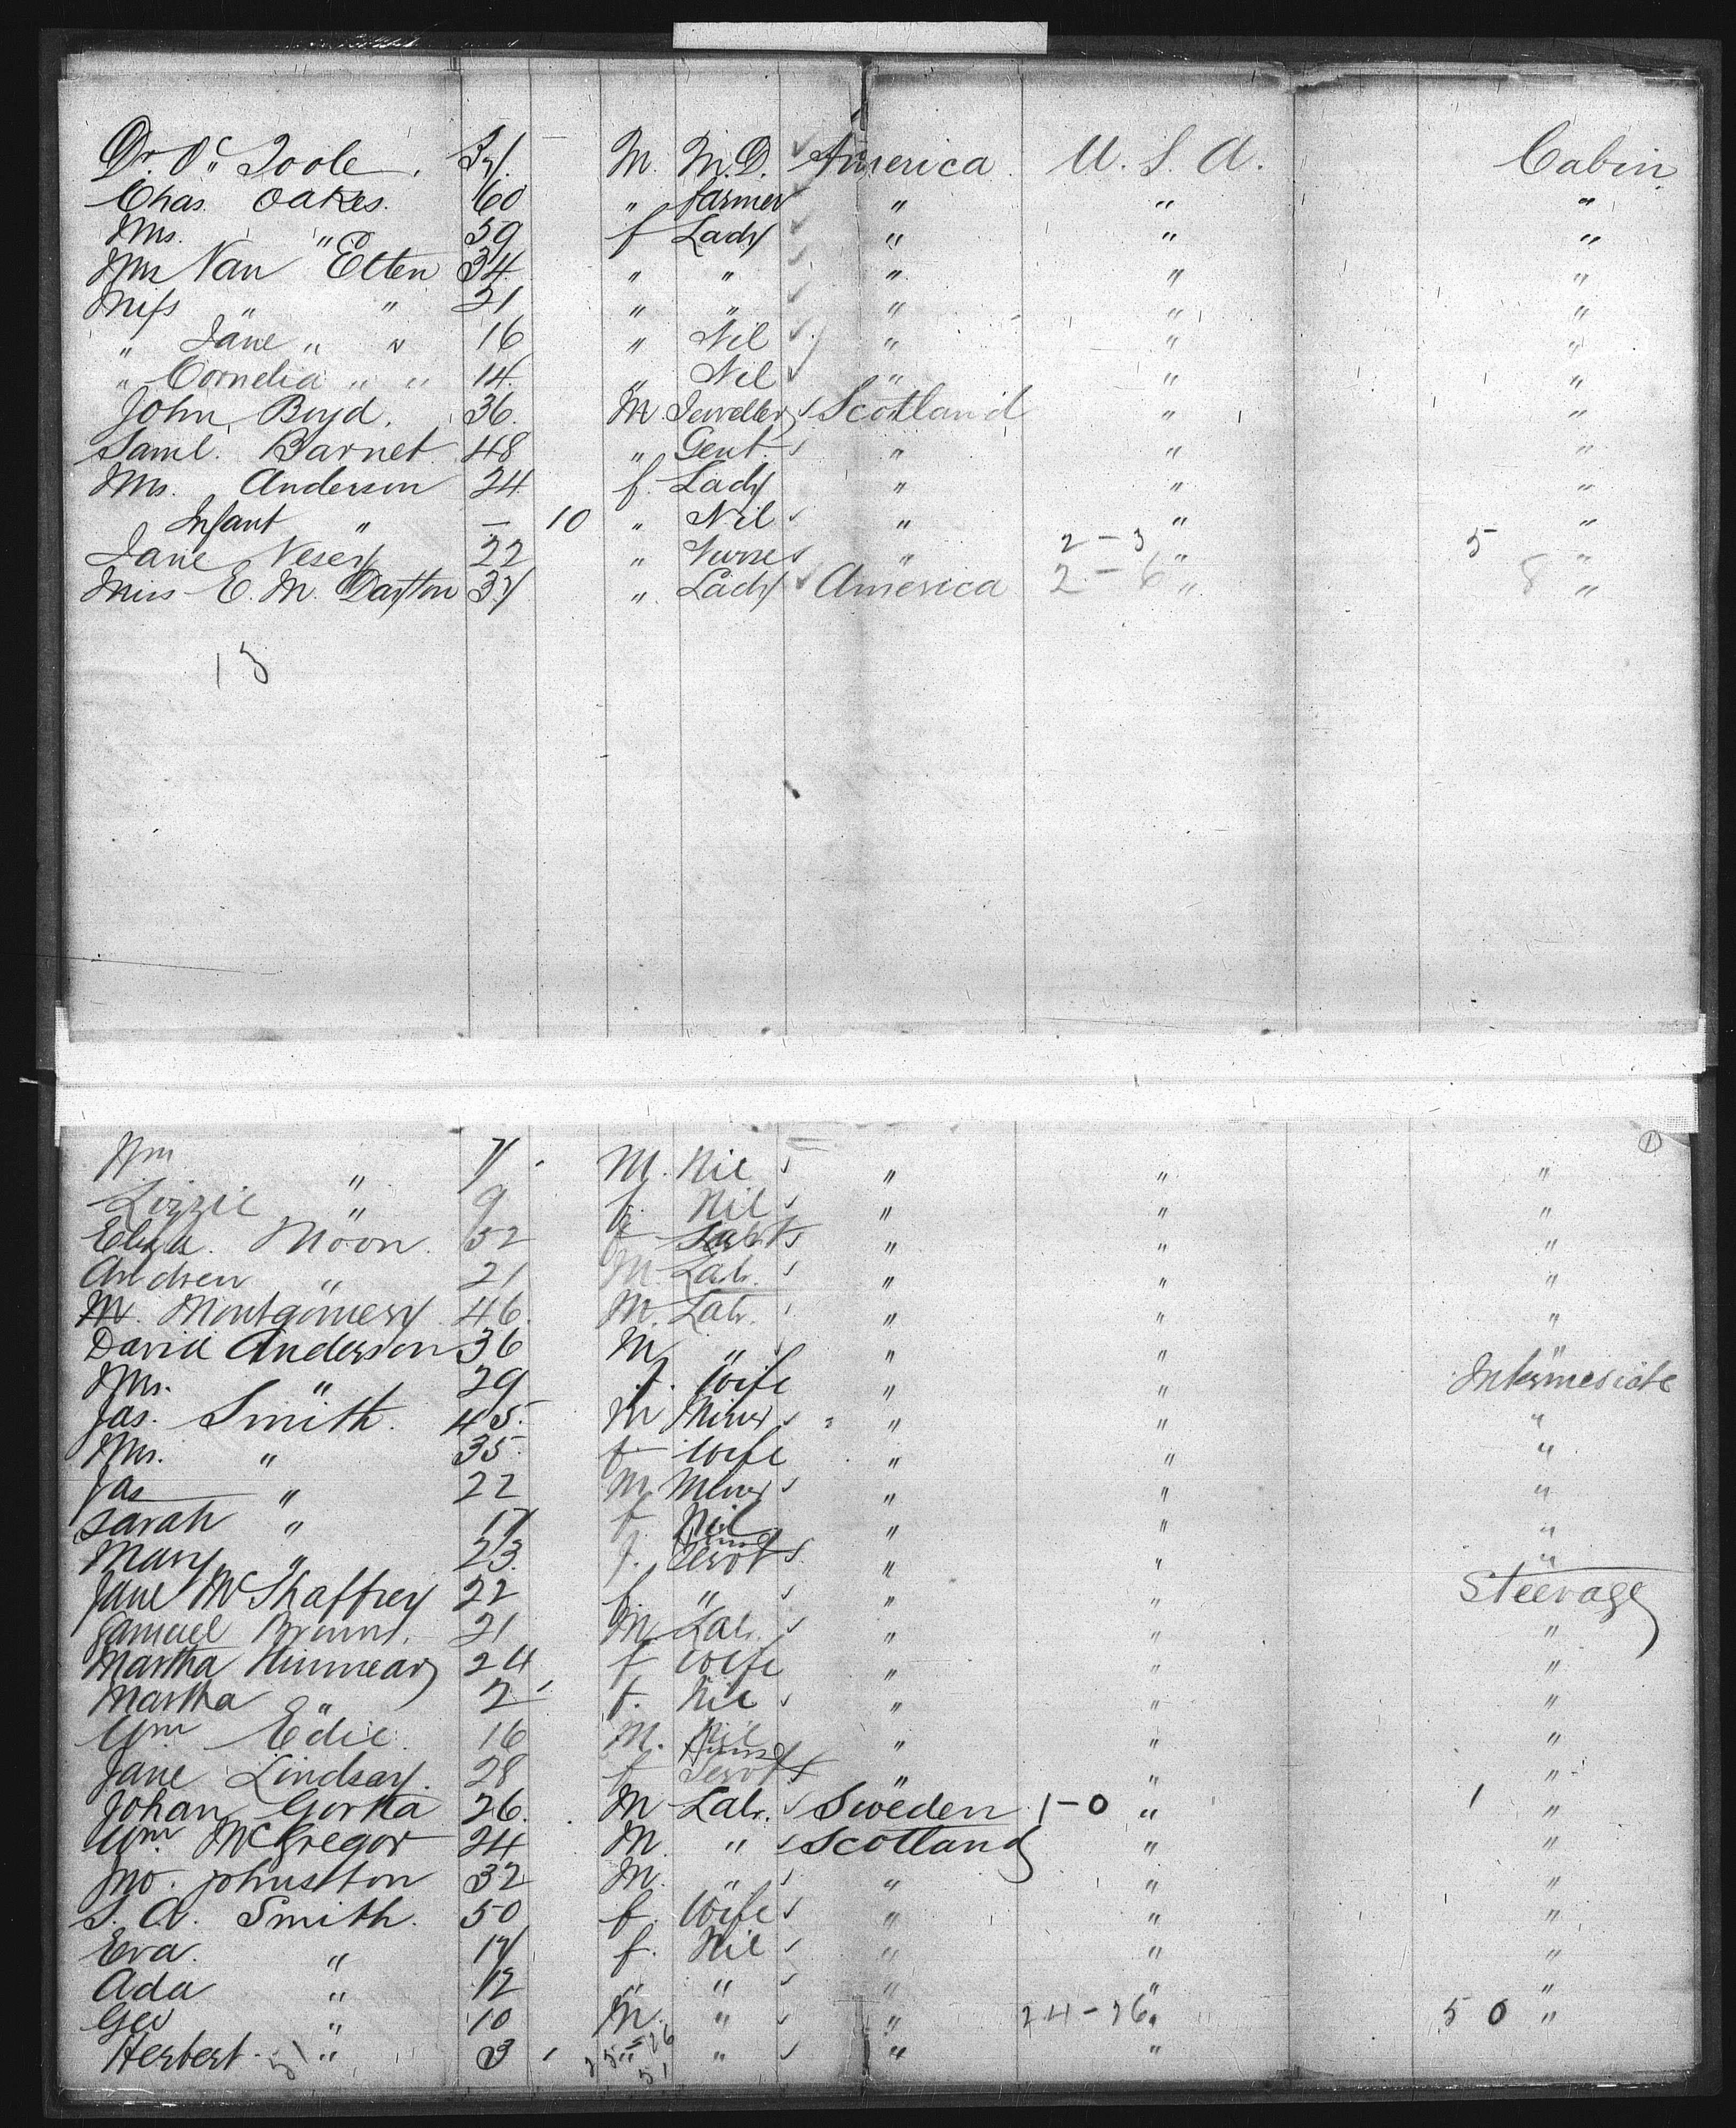 Dr. Oc Toole. 37. M. M.D. America U.S.A. Cabin
Chas. Oakes. 60 " farmer " " "
Mrs. " 59 f Lady " " "
Mrs Van Etten 34 " " " " "
Miss " " 21 " " " " "
" Jane " " 16 " Nil " " "
" Cornelia " " 14. " Nil " " "
John Boyd. 36. M. Jeweller Scotland " "
Saml. Barnet 48 " Gent. " " "
Mrs. Anderson 24 f. Lady " " "
Infant " — 10 " Nil " " "
Jane Vesey 22 " Nurse " 2-3 " 5 "
Miss E. M. Dayton 37 " Lady America 2-6 " 8 "
13
①
Wm " 7 M. Nil " " "
Lizzie " 9 f. Nil " " "
Eliza. Moon. 52 f " " "
Andrew " 21 M. Labr. " " "
M. Montgomery 46. M. Labr. " " "
David Anderson 36 M " " " "
Mrs. " 29 f. Wife " " Intermediate
Jas. Smith. 45. M Miner " " "
Mrs. " 35. f wife " " "
Jas " 22 M Miner " " "
Sarah " 17 f. Nil " " "
Mary " 23. f. Servt " " "
Jane McShaffrey 22 f. " " " Steerage
Samuel 21 M Labr. " " "
Martha 24 f wife " " "
Martha " 2 f. Nil " " "
Wm Edie. 16 M. Nil " " "
Jane Lindsay. 28 f Servt " " "
Johan Gorka 26. M Labr. Sweden 1-0 " 1 "
Wm. McGregor 24 M. " Scotland " "
Jno. Johnston 32 M. " " " "
S. A. Smith. 50 f. Wife " " "
Eva. " 17 f. Nil " " "
Ada " 12 " " " " "
Geo " 10 M. " " 24-26 " 50 "
Herbert " 51 3 " 25-26 51 " " " "